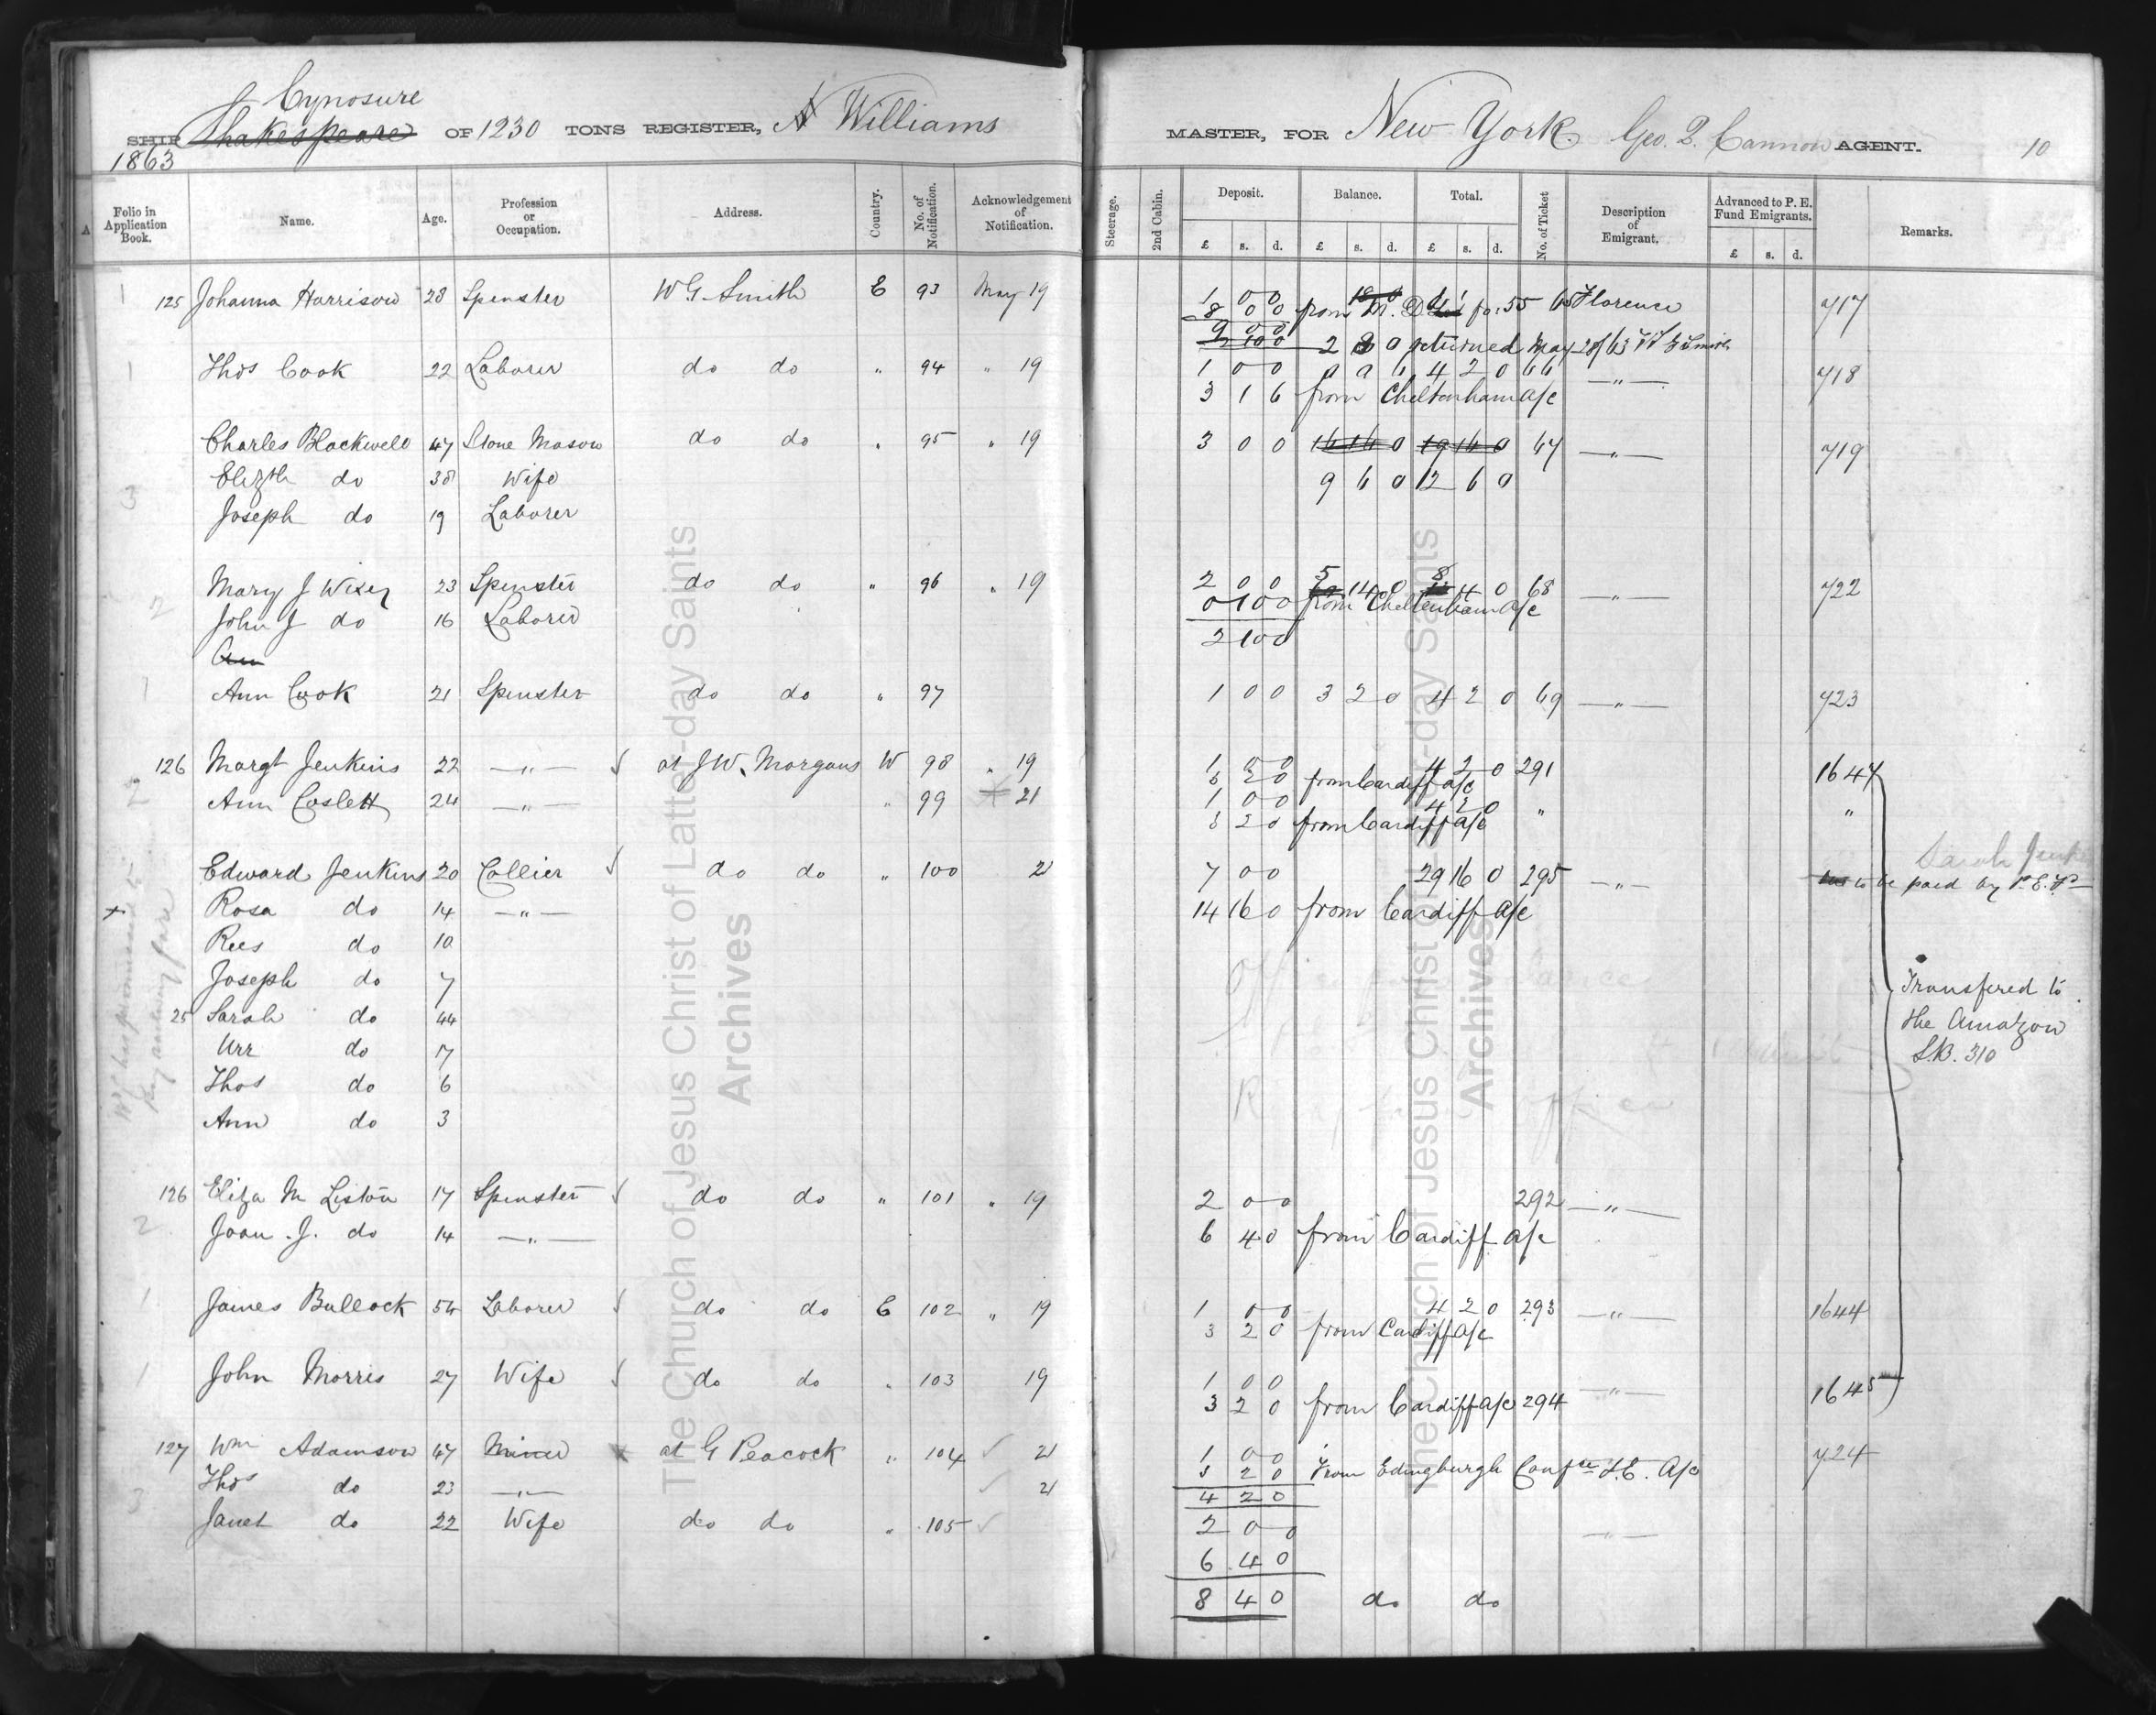 Cynosure
SHIP Shakespeare OF 1230 TONS REGISTER, A Williams MASTER, FOR New York Geo. Q. Cannon AGENT. 10
1863
Folio in Application Book. Name. Age. Profession or Occupation. Address. Country. No. of Notification. Acknowledgement of Notification. Steerage. 2nd Cabin. Deposit. Balance. Total. No. of Ticket Description of Emigrant. Advanced to P. E. Fund Emigrants. Remarks.
£ s. d. £ s. d. £ s. d. £ s. d.
1 125 Johanna Harrison 28 Spinster W G Smith E 93 May 19 1 0 0 65 Florence 717
8 0 0 from
9 0 0
2 8 0 returned May 28/63
1 Thos Cook 22 Laborer do do " 94 " 19 1 0 0 4 2 0 66 " 718
3 1 6 from Cheltenham a/c
Charles Blackwell 47 Stone Mason do do " 95 " 19 3 0 0 16 16 0 19 16 0 67 " 719
3 Elizth do 38 Wife 9 6 0 12 6 0
Joseph do 19 Laborer
2 Mary J Wixey 23 Spinster do do " 96 " 19 2 0 0 5 14 0 8 4 0 68 " 722
John J do 16 Laborer 0 10 0 from Cheltenham a/c
2 10 0
Ann
1 Ann Cook 21 Spinster do do " 97 1 0 0 3 2 0 4 2 0 69 " 723
126 Margt Jenkins 22 " at J W. Morgans W 98 " 19 1 0 0 4 2 0 291 1647
3 2 0 from Cardiff a/c
2 Ann Coslett 24 " " 99 21 1 0 0 4 2 0 " "
3 2 0 from Cardiff a/c
Edward Jenkins 20 Collier do do " 100 21 7 0 0 29 16 0 295 " Sarah to be paid by P. E. Fd
x Rosa do 14 " 14 16 0 from Cardiff a/c
Rees do 10
Joseph do 7 Transfered to
25 Sarah do 44 the Amazon
Urr do 17 S.B. 310
Thos do 6
Ann do 3
126 Eliza M Liston 17 Spinster do do " 101 " 19 2 0 0 292 "
2 Joan .J. do 14 " 6 4 0 from Cardiff a/c
1 James Bullock 54 Laborer do do E 102 " 19 1 0 0 4 2 0 293 " 1644
3 2 0 from Cardiff a/c
1 John Morris 27 Wife do do " 103 19 1 0 0 " 1645
3 2 0 from Cardiff a/c 294
127 Wm Adamson 47 Miner x at G Peacock " 104 21 1 0 0 724
3 2 0 From Edingburgh Confce L.E. A/c
3 Thos do 23 " 21 4 2 0
Janet do 22 Wife do do " 105 2 0 0 "
6 4 0
8 4 0 do do
The Church of Jesus Christ of Latter-day Saints
Archives
The Church of Jesus Christ of Latter-day Saints
Archives